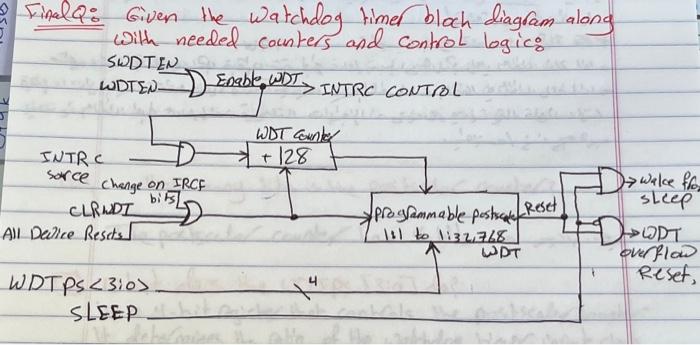 Final Q: Given the watchdog timer block diagram along
with needed counters and control logic:
SWDTEN
WDTEN
Enable WDT
INTRC CONTROL
WDT Counter
INTRC
Source
÷128
Change on IRCF
bits
CLRWDT
All Device Resets
programmable postscaler
1:1 to 1:32,768
WDT
Reset
wake from
sleep
WDT
overflow
Reset.
WDTPS<3:0>
4
SLEEP